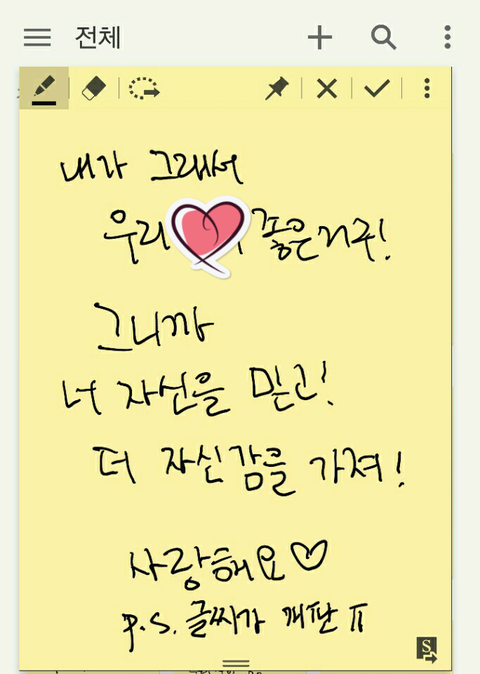 전체
내가 그래서
우리 좋은거구!
그니까
너 자신을 믿고!
더 자신감을 가져!
사랑해요♡
p.s. 글씨가 개판 ㅠ